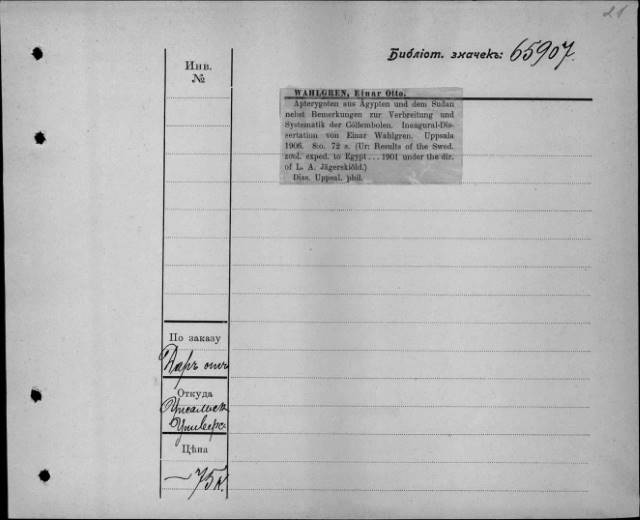 21
Библіот. значекъ: 65907.
Инв.
№
WAHLGREN, Einar Otto.
Apterygoten aus Ägypten und dem Sudan
nebst Bemerkungen zur Verbreitung und
Systematik der Collembolen. Inaugural-Dis-
sertation von Einar Wahlgren. Uppsala
1906. 8:o. 72 s. (Ur: Results of the Swed.
zool. exped. to Egypt ... 1901 under the dir.
of L. A. Jägerskiöld.)
Diss. Uppsal. phil.
По заказу
Даръ отъ
Откуда
Упсальск.
Универс.
Цѣна
— 75 к.